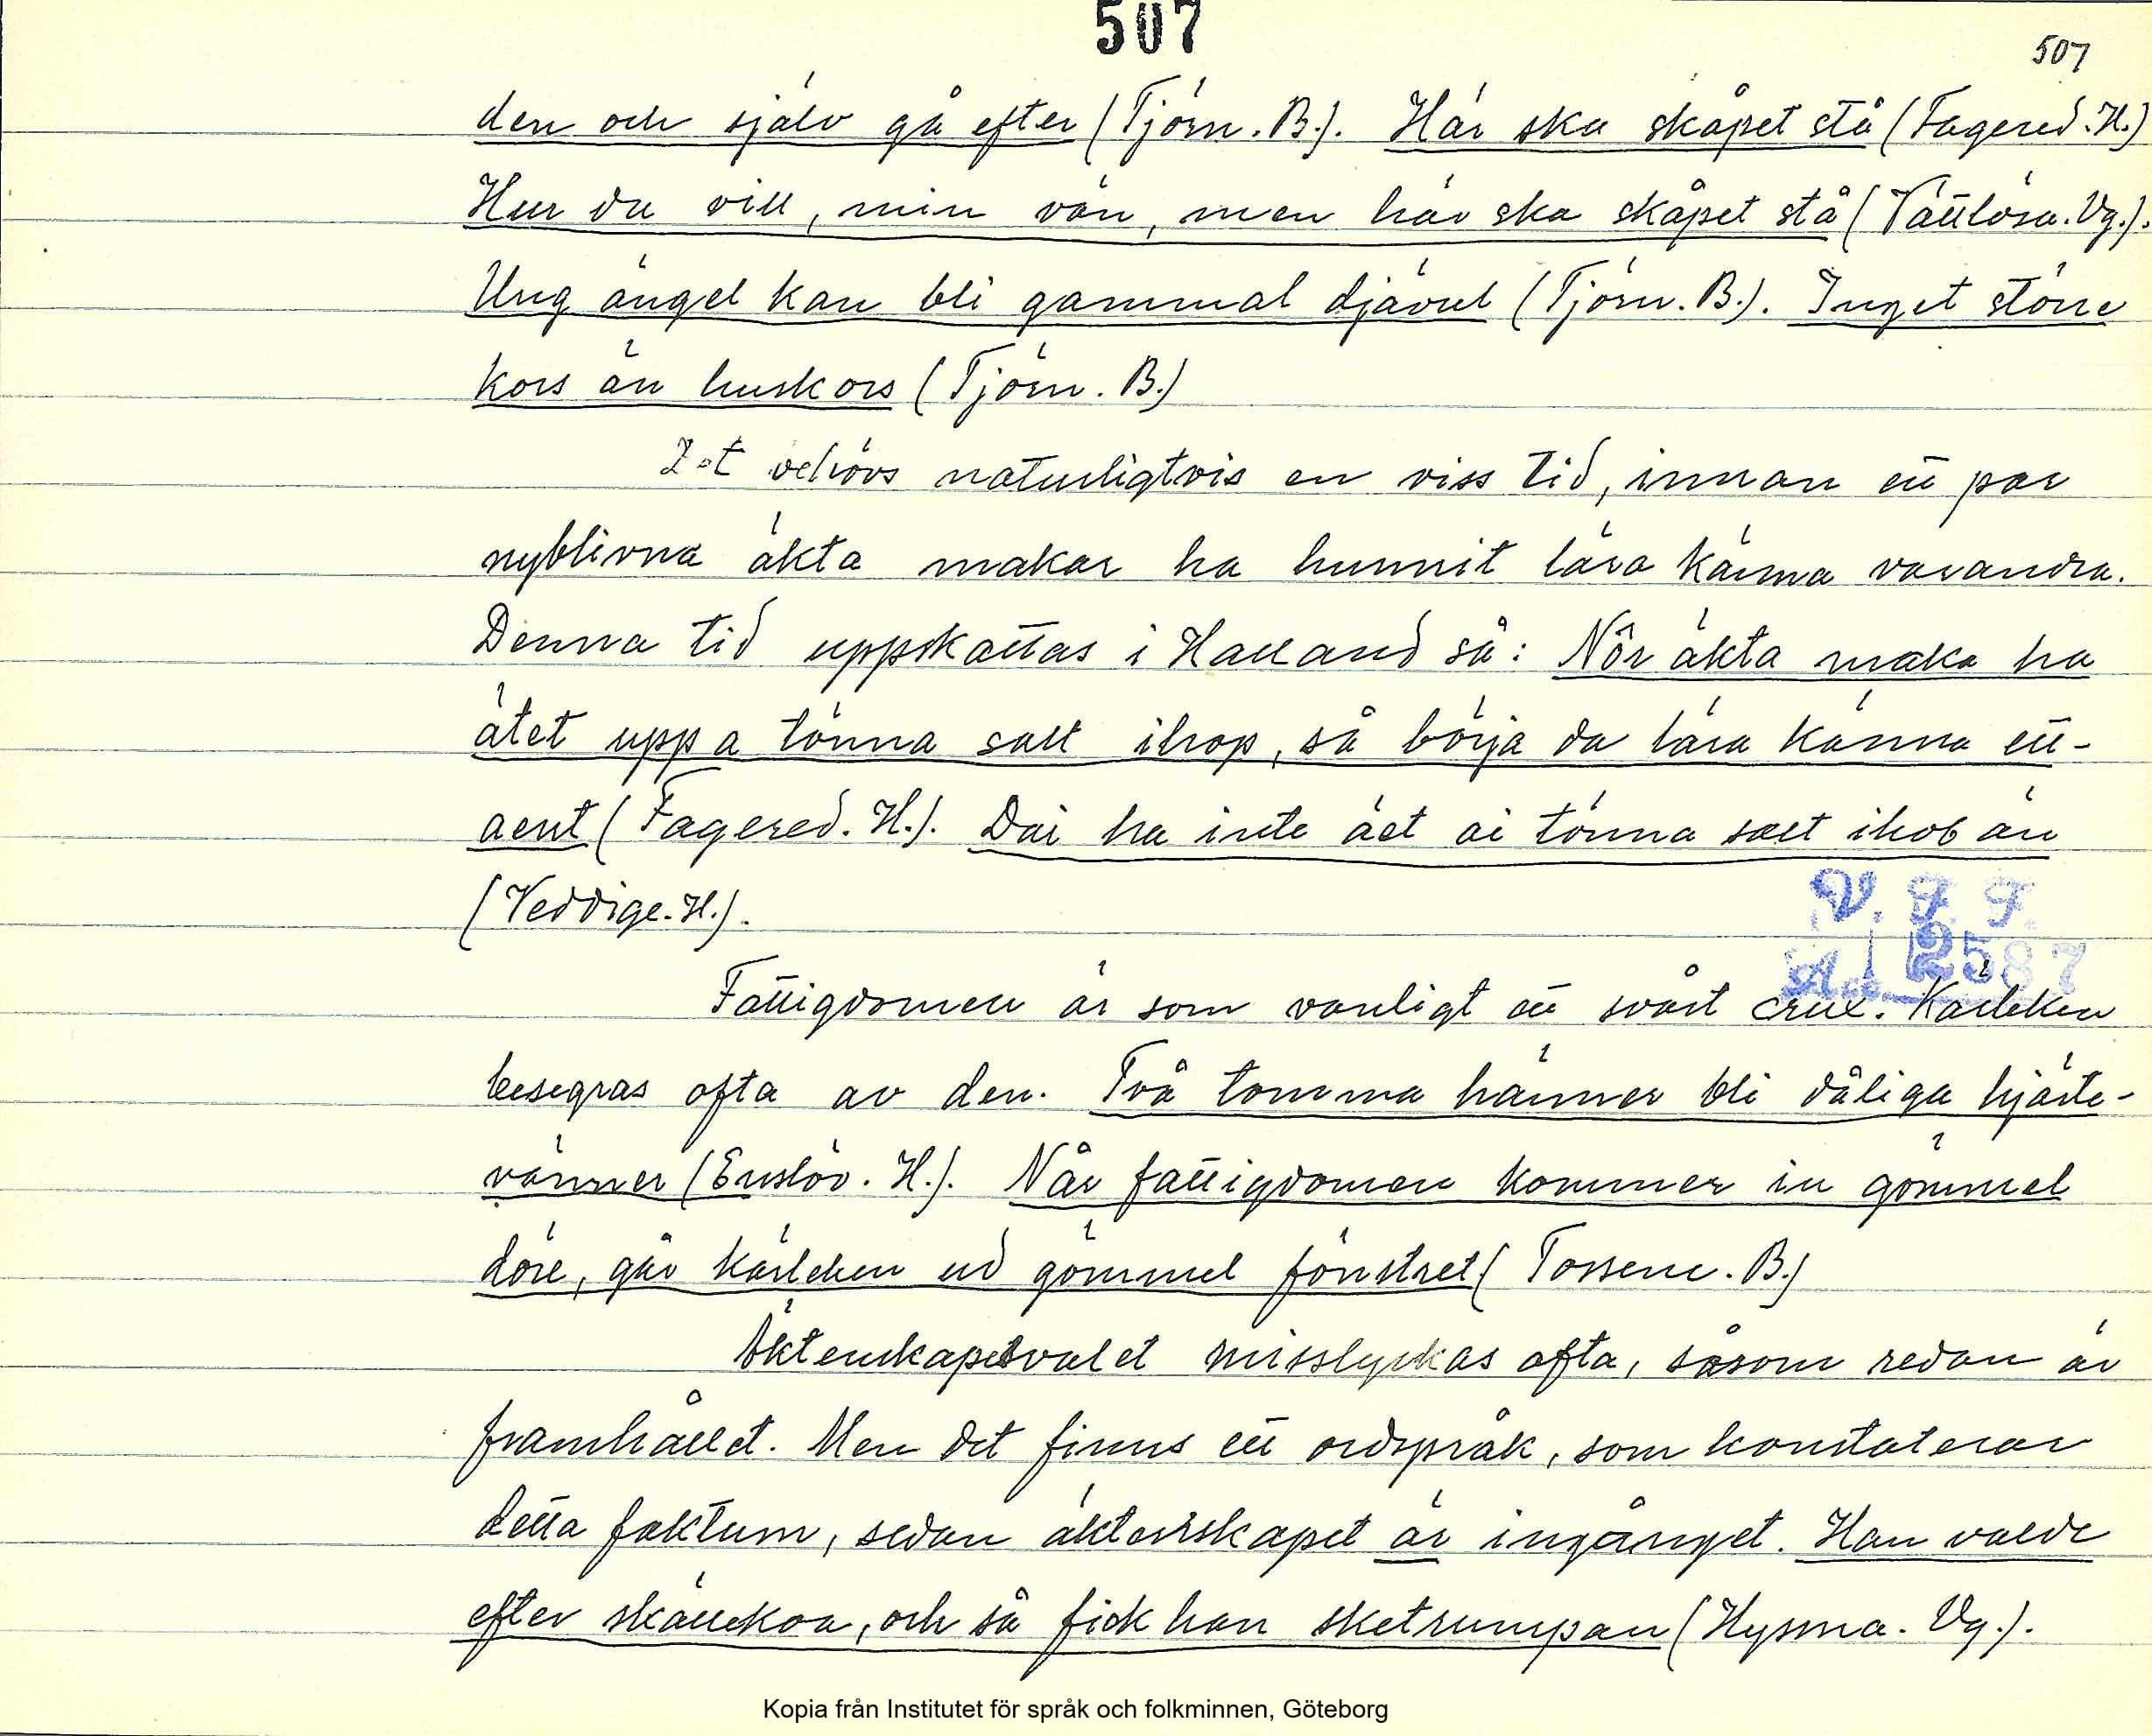 507
507
den och själv gå efter (Tjörn. B.). Här ska skåpet stå (Fagered. H.)
Hur du vill, min vän, men här ska skåpet stå (Tåtlösa. Vg.).
Ung ängel kan bli gammal djävul (Tjörn. B.). Inget större
kors än huskors (Tjörn. B.)
Det behövs naturligtvis en viss tid, innan ett par
nyblivna äkta makar ha hunnit lära känna varandra.
Denna tid uppskattas i Halland så: Nôr äkta maka ha
ätet upp a tönna salt ihop, så börja da lära känna ett-
aent (Fagered. H.). Dai ha inte äet ai tönna salt ihob än
(Veddige. H.).
V. F. F.
Acc. 2587
Fattigdomen är som vanligt ett svårt crux. Kärleken
besegras ofta av den. Två tomma hänner bli dåliga hjärte-
vänner (Enslöv. H.). När fattigdomen kommer in gömmel
döre, går kärleken ud gömmel fönstret (Tossene. B.)
Äktenskapsvalet misslyckas ofta, såsom redan är
framhållet. Men det finns ett ordspråk, som konstaterar
detta faktum, sedan äktenskapet är ingånget. Han valde
efter skällekoa, och så fick han sketrumpan (Hyssna. Vg.).
Kopia från Institutet för språk och folkminnen, Göteborg